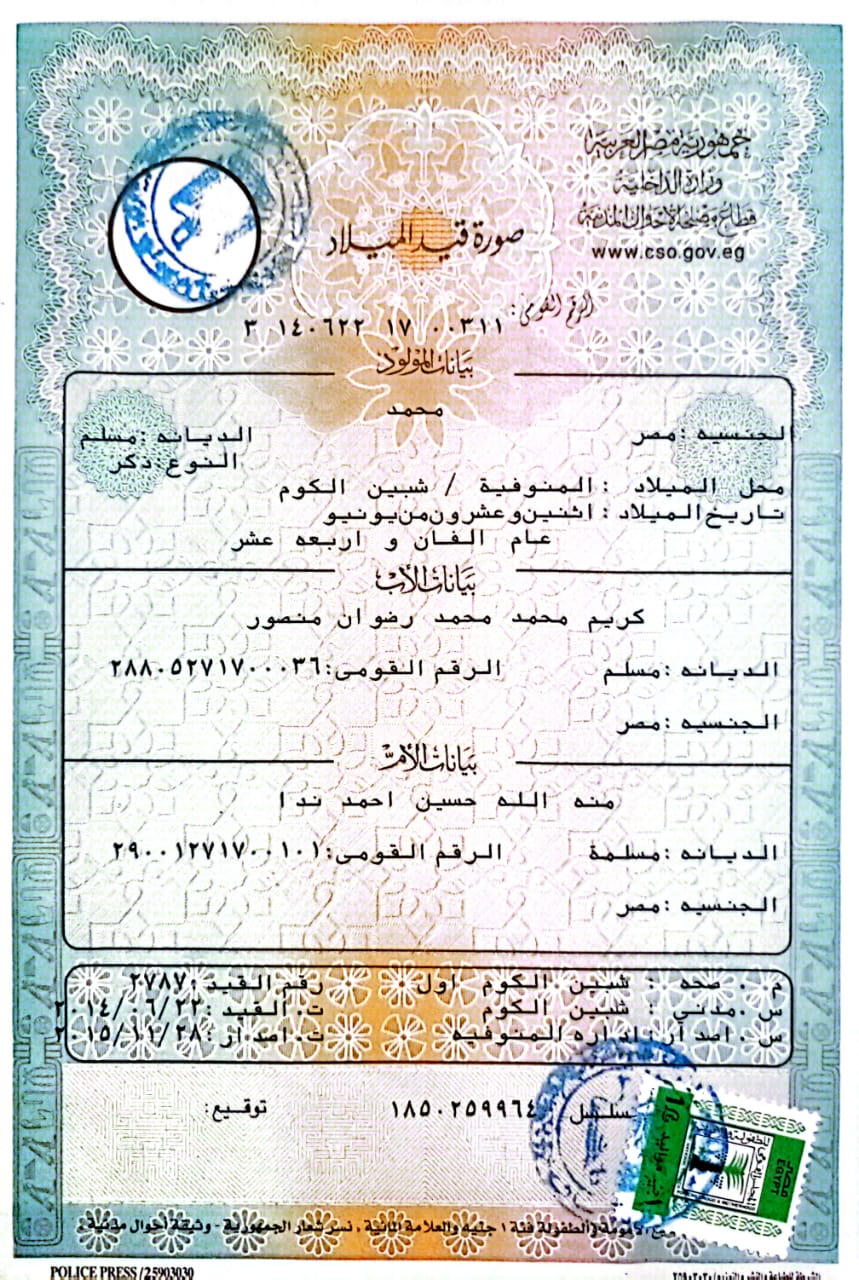 جمهورية مصر العربية
وزارة الداخلية
قطاع مصلحة الأحوال المدنية
www.cso.gov.eg
صورة قيد الميلاد
الرقم القومى:
٣ ١٤٠٦٢٢ ١٧ ٠٠٣١١
بيانات المولود
محمد
الجنسيه :مصر الديانه :مسلم
النوع :ذكر
محل الميلاد : المنوفية / شبين الكوم
تاريخ الميلاد : اثنين وعشرون من يونيو
عام الفان و اربعه عشر
بيانات الأب
كريم محمد محمد رضوان منصور
الديانه :مسلم الرقم القومى:٢٨٨٠٥٢٧١٧٠٠٠٣٦
الجنسيه :مصر
بيانات الأم
منه الله حسين احمد ندا
الديانه :مسلمة الرقم القومى:٢٩٠٠١٢٧١٧٠٠١٠١
الجنسيه :مصر
م . صحه : شبين الكوم اول رقم القيد :٢٧٨٧
س .مدنى : شبين الكوم ت. القيد :٢٠١٤/٠٦/٢٢
س . اصدار :اداره المنوفيه ت. اصدار :٢٠١٥/١١/٢٨
مسلسل ١٨٥٠٢٥٩٩٦٤ توقيع:
مصر
EGYPT
الأمومة والطفولة فئة ١ جنيه والعلامة المائية ، نسر شعار الجمهورية - وثيقة أحوال مدنية
POLICE PRESS /25903030